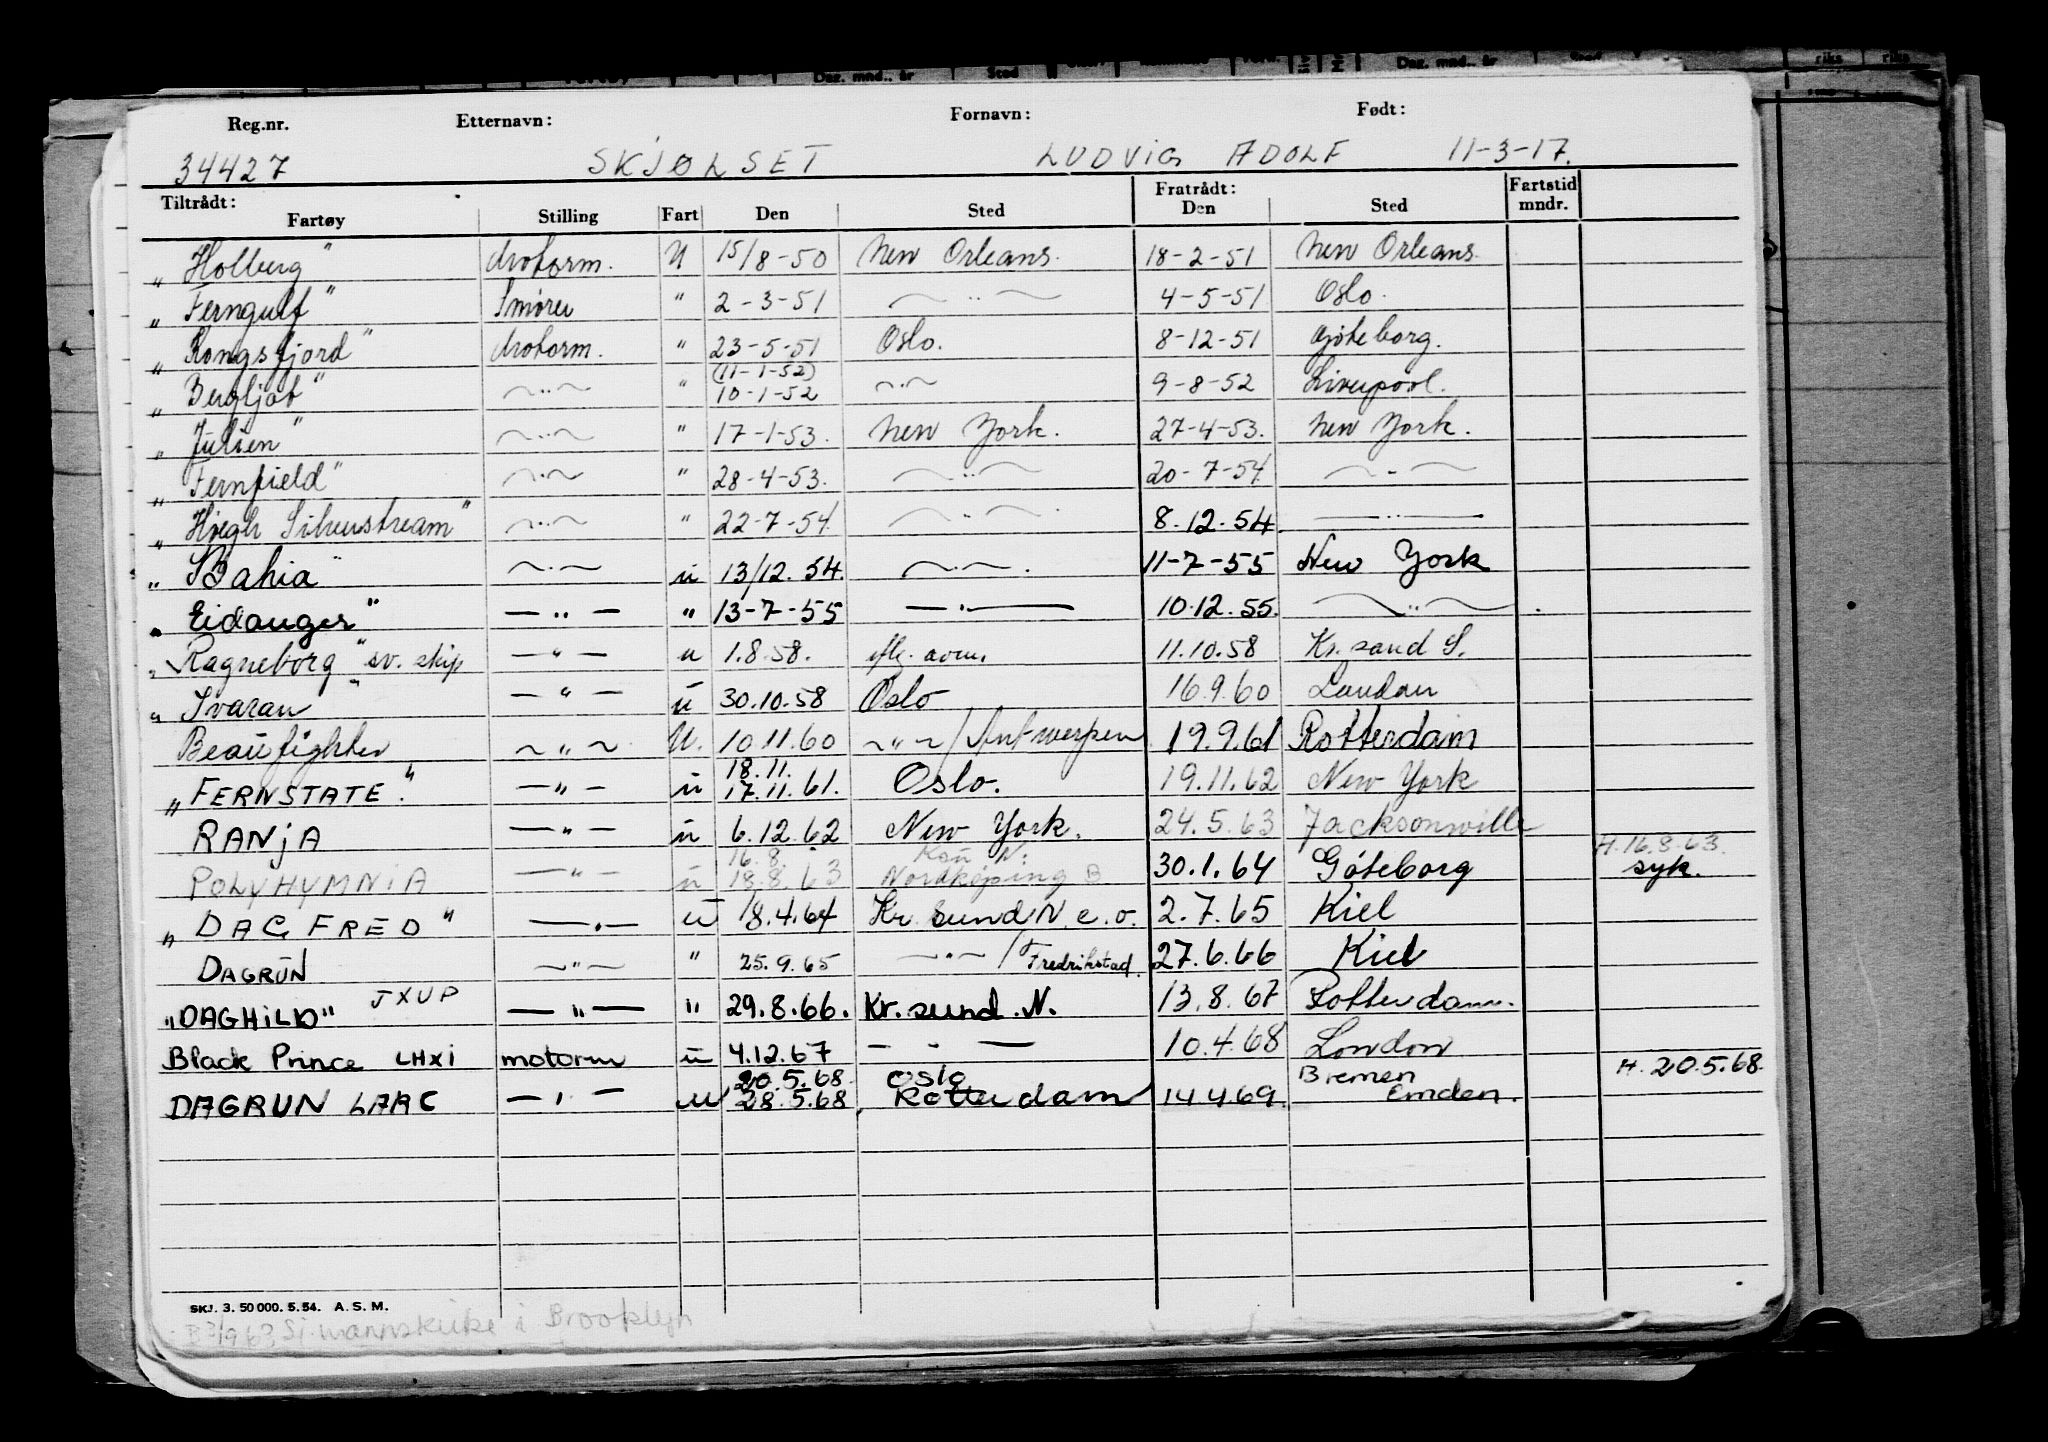 Reg.nr. Etternavn: Fornavn: Født:
34427 SKJØLSET LUDVIG ADOLF 11-3-17.
Tiltrådt: Fratrådt: Fartstid
Fartøy Stilling Fart Den Sted Den Sted mndr.
„Holberg" Motorm. U 15/8-50 New Orleans. 18-2-51 New Orleans.
„Ferngulf" Smører " 2-3-51 ~..~ 4-5-51 Oslo.
„Kongsfjord" Motorm. " 23-5-51 Oslo. 8-12-51 Göteborg.
(11-1-52)
„Bergljot" ~..~ " 10-1-52 ~.~ 9-8-52 Liverpool.
„Julien" ~..~ " 17-1-53. New York. 27-4-53. New York.
„Fernfield" ~.~ " 28-4-53. ~..~ 20-7-54 ~..~
„Høegh Silverstream" ~..~ " 22-7-54 ~..~ 8.12.54 —..—
„Bahia" ~.~ u 13/12.54. ~..~. 11-7-55 New York
„Eidanger" — " — " 13-7-55 — " — 10.12.55. ~ " ~.
„Ragneborg" sv. skip — " — u 1.8.58. 11.10.58 Kr.sand S.
„Svaran" — " — u 30.10.58 Oslo 16.9.60 London
Beaufighter ~ " ~ U. 10.11.60 ~ " ~/Antwerpen 19.9.61 Rotterdam
18.11.
„FERNSTATE." — " — u 17.11.61. Oslo. 19.11.62 New York
RANJA — " — u 6.12.62 New York. 24.5.63 Jacksonville
16.8. N: H.16.8.63.
POLYHYMNIA — " — u 18.8.63 Nordköping B 30.1.64 Göteborg syk.
„DAGFRED" —.— u 18.4.64 Kr.sund N. e.o. 2.7.65 Kiel
DAGRUN ~ " ~ " 25.9.65 — " —/Fredrikstad. 27.6.66 Kiel
„DAGHILD" JXUP — " — " 29.8.66. Kr.sund.N. 13.8.67 Rotterdam.
Black Prince LHXI motorm u 4.12.67 — - — 10.4.68 London
20.5.68. Oslo Bremen H. 20.5.68.
DAGRUN LAAC — ' — u 28.5.68 Rotterdam 14.4.69. Emden.
SKJ. 3. 50 000. 5. 54. A. S. M.
Sj.mannskirke i Brooklyn